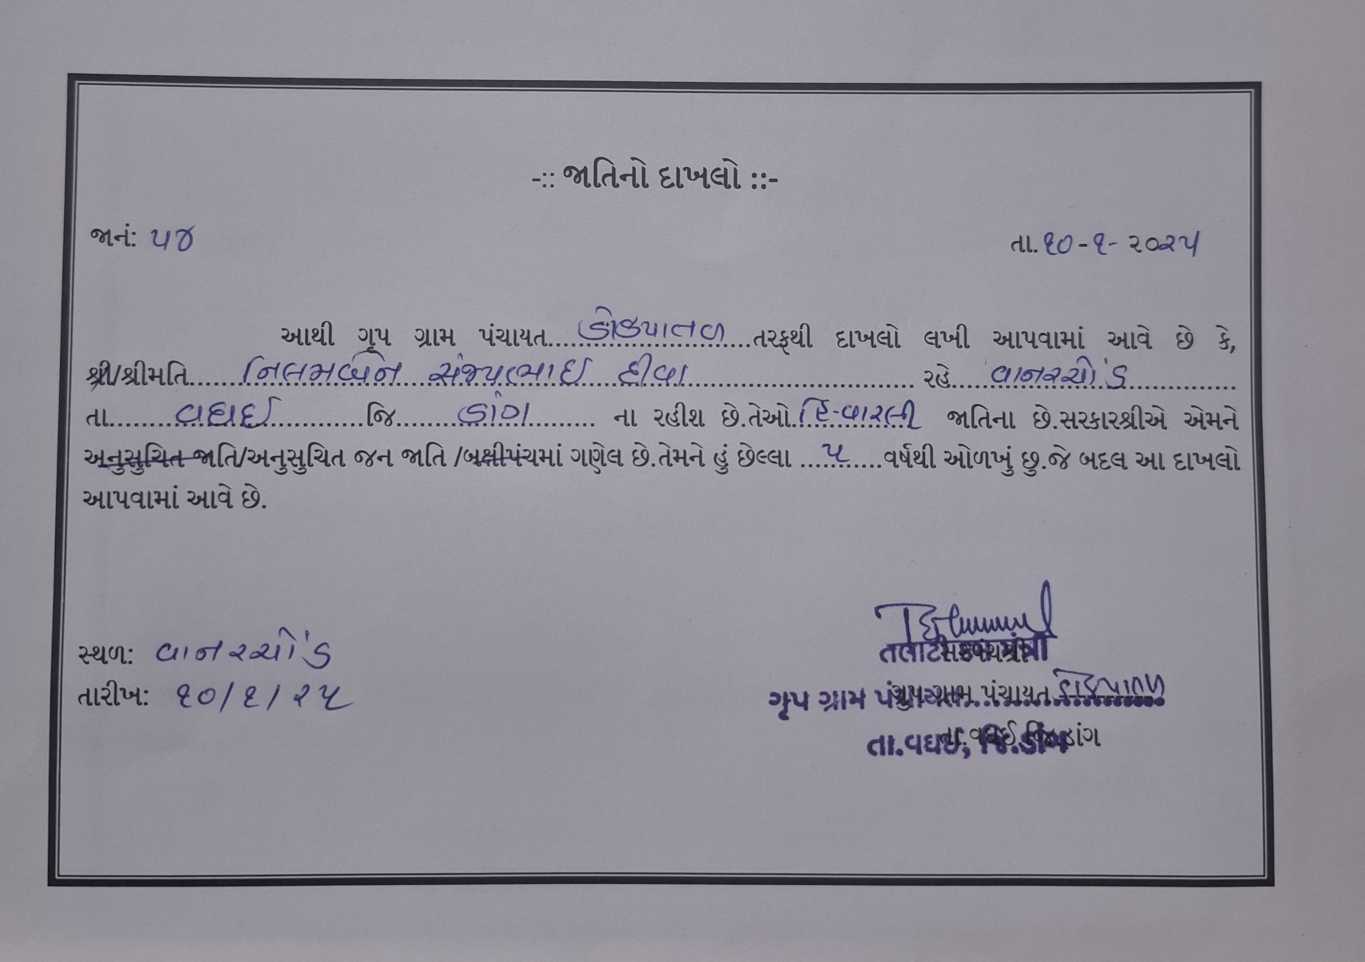 -:: જાતિનો દાખલો ::-
જાનં: ૫૪ તા.૧૦-૧-૨૦૨૫
આથી ગૃપ ગ્રામ પંચાયત....ડોકપાતળ....તરફથી દાખલો લખી આપવામાં આવે છે કે,
શ્રી/શ્રીમતિ......નિલમબેન સંજયભાઇ દીવા...................... રહે.....વાનરચોંડ..............
તા........વઘઇ...........જિ........ડાંગ.......... ના રહીશ છે.તેઓ.હિ-વારલી જાતિના છે.સરકારશ્રીએ એમને
અનુસુચિત જાતિ/અનુસુચિત જન જાતિ /બક્ષીપંચમાં ગણેલ છે.તેમને હું છેલ્લા ...૫....વર્ષથી ઓળખું છુ.જે બદલ આ દાખલો
આપવામાં આવે છે.
સ્થળ: વાનરચોંડ
તારીખ: ૧૦/૧/૨૫
ગૃપ ગ્રામ પંચાયત
તા.વઘઈ, જિ.ડાંગ